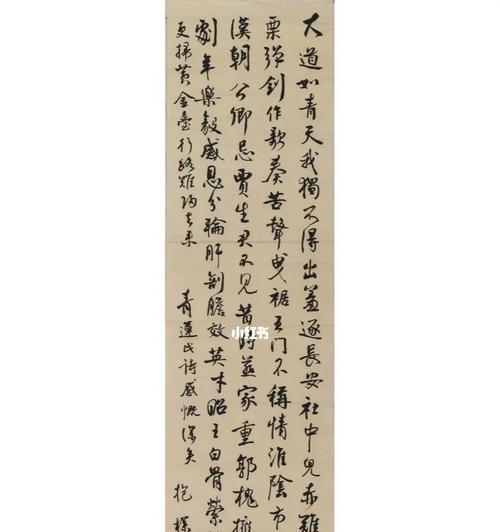 大道如青天我獨不得出羞逐長安社中兒赤雞
栗彈劍作歌奏苦聲曳裾王门不稱情淮陰市
漢朝公卿忌賈生君不見昔時燕家重郭隗擁
劇辛樂毅感恩分輸肝剖膽效英才昭王白骨縈
更掃黃金臺行路難歸去來
青蓮氏詩感慨深矣 抱
小红书